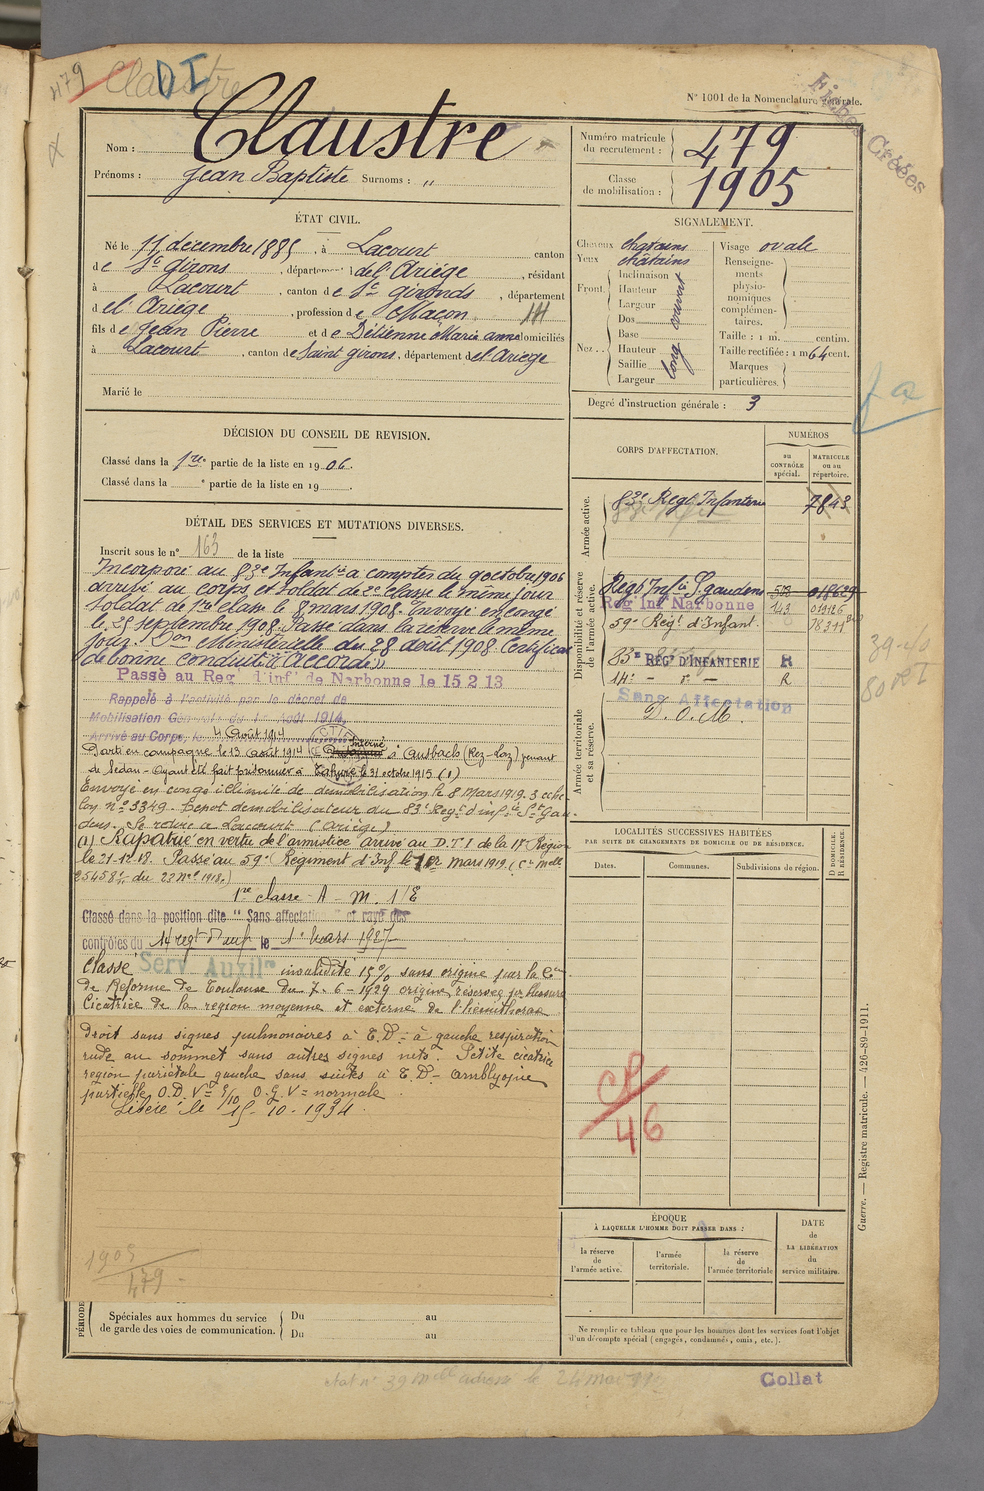 479 Claustre
DI
N° 1001 de la Nomenclature générale.
Fiches Créées
Nom : Claustre
Prénoms : Jean Baptiste Surnoms : "
Numéro matricule du recrutement : 479
Classe de mobilisation : 1905
ÉTAT CIVIL.
Né le 11 décembre 1885, à Lacourt canton
de St Girons, département de l'Ariége, résidant
à Lacourt, canton de St Gironds, département
d el Ariége, profession de Maçon
fils de Jean Pierre et de Délienne Marie anne domiciliés
à Lacourt, canton de Saint girons, département de l'Ariège
Marié le
SIGNALEMENT.
Cheveux chatains
Yeux châtains
Front. Inclinaison
Hauteur
Largeur
Nez.. Dos
Base
Hauteur
Saillie
Largeur
long
Visage ovale
Renseignements physionomiques complémentaires.
Taille : 1 m. centim.
Taille rectifiée : 1 m 64 cent.
Marques particulières.
Degré d'instruction générale : 3
DÉCISION DU CONSEIL DE REVISION.
Classé dans la 1re partie de la liste en 1906.
Classé dans la ° partie de la liste en 19 .
DÉTAIL DES SERVICES ET MUTATIONS DIVERSES.
Inscrit sous le n° 163 de la liste
Incorporé au 83e Infantie à compter du 9 octobre 1906
arrivé au corps et soldat de 2e classe le même jour
Soldat de 1re classe le 8 mars 1908. Envoyé en congé
le 25 septembre 1908. Passé dans la réserve le même
jour. Don Ministérielle du 28 août 1908. Certificat
de bonne conduite "accordé"
Passé au Regt d'inf de Narbonne le 15 2 13
Rappelé à l'activité par le décret de
Mobilisation Générale du 1er Août 1914.
Arrivé au Corps, le 4 Août 1914
Parti en campagne le 13 Août 1914 Interné à Ausbach (Rez-Laz) venant
de Sedan - Ayant été fait prisonnier à Tahure le 31 octobre 1915 (1)
Envoyé en congé illimité de démobilisation le 8 Mars 1919. 3 eche
lon no 3349. Depot demobilisateur du 83e Regt d'inftie St Gau
dens. Se retire à Lacourt (Ariège)
(1) Rapatrié en vertu de l'armistice arrivé au D.T.I de la 17e Region
le 21-12-18. Passé au 59e Regiment d'Inf le 1er mars 1919. (Ct Melle
25458 1/11 du 23 Nre 1918.)
1re classe A - M. 1/E
Classé dans la position dite "Sans affectation" et rayé des
contrôles du 14 regt d'inf le 1er Mars 1927
Classé Serv Auxilre invalidité 15% sans origine par la Con
de Réforme de Toulouse du 7-6-1929 origine réservée pr blessure
Cicatrice de la region moyenne et externe de l'hemithorax
droit sans signes pulmonaires à T.D. - à gauche respiration
rude au sommet sans autres signes nets. Petite cicatrice
region pariétale gauche sans suites à T.D. - amblyopie
partielle O.D. V= 5/10 O.G. V= normale
Libéré le 15-10-1934.
1905
479
PÉRIODE
Spéciales aux hommes du service de garde des voies de communication.
Du au
Du au
CORPS D'AFFECTATION.
NUMÉROS
au CONTRÔLE spécial.
MATRICULE ou au répertoire.
Armée active.
83e Regt Infanterie 7843
Disponibilité et réserve de l'armée active.
Regt Infie St gaudens 573 015629
Reg Inf Narbonne 143 019126
59e Regt d'Infant. 18311
83e REGt D'INFANTERIE R
14e - d° - R
Armée territoriale et sa réserve.
Sans Affectation
D. O. M.
39-40
LOCALITÉS SUCCESSIVES HABITÉES
PAR SUITE DE CHANGEMENTS DE DOMICILE OU DE RÉSIDENCE.
Dates.
Communes.
Subdivisions de région.
D DOMICILE. R RÉSIDENCE.
CP
46
ÉPOQUE
À LAQUELLE L'HOMME DOIT PASSER DANS :
la réserve de l'armée active.
l'armée territoriale.
la réserve de l'armée territoriale
DATE de LA LIBÉRATION du service militaire.
Ne remplir ce tableau que pour les hommes dont les services font l'objet
d'un décompte spécial (engagés, condamnés, omis, etc.).
Guerre. — Registre matricule. — 426-89-1911.
Collat